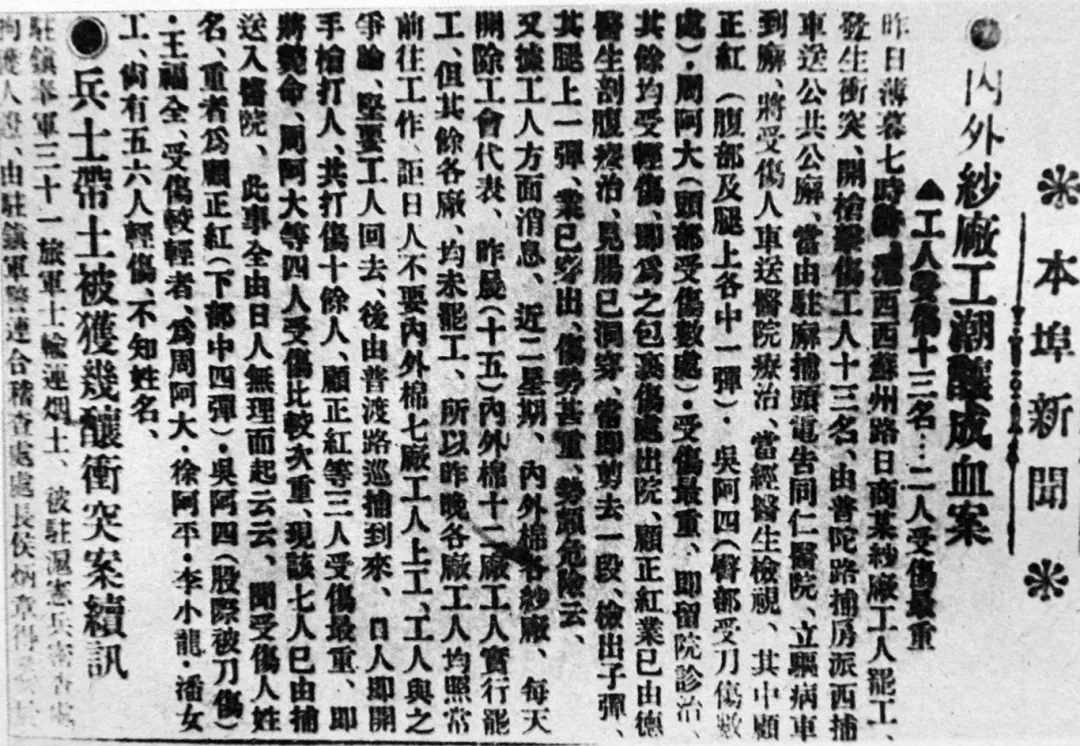 本埠新聞
內外紗廠工潮釀成血案
▲工人受傷十三名…二人受傷最重
昨日薄暮七時許、滬西西蘇州路日商某紗廠工人罷工、
發生衝突、開槍擊傷工人十三名、由普陀路捕房派西捕
車送公共公廨、當由駐廨捕頭電告同仁醫院、立驅病車
到廨、將受傷人車送醫院療治、當經醫生檢視、其中顧
正紅（腹部及腿上各中一彈）·吳阿四（臀部受刀傷數
處）·周阿大（頭部受傷數處）·受傷最重、即留院診治、
其餘均受輕傷、即爲之包裹傷處出院、顧正紅業已由德
醫生剖腹療治、見腸已洞穿、當即剪去一段、檢出子彈、
其腿上一彈、業已穿出、傷勢甚重、勢頗危險云、
又據工人方面消息、近二星期、內外棉各紗廠、每天
開除工會代表、昨晨（十五）內外棉十二廠工人實行罷
工、但其餘各廠、均未罷工、所以昨晚各廠工人均照常
前往工作、詎日人不要內外棉七廠工人上工、工人與之
爭論、堅要工人回去、後由普渡路巡捕到來、日人即開
手槍打人、共打傷十餘人、顧正紅等三人受傷最重、即
將斃命、周阿大等四人受傷比較次重、現該七人已由捕
送入醫院、此事全由日人無理而起云云、聞受傷人姓
名、重者爲顧正紅（下部中四彈）·吳阿四（股際被刀傷）
·王福全、受傷較輕者、爲周阿大·徐阿平·李小龍·潘女
工、尙有五六人輕傷、不知姓名、
兵士帶土被獲幾釀衝突案續訊
駐鎭奉軍三十一旅軍士輸運烟土、被駐滬憲兵
拘獲人證、由駐鎭軍警連合稽查處處長侯炳章得